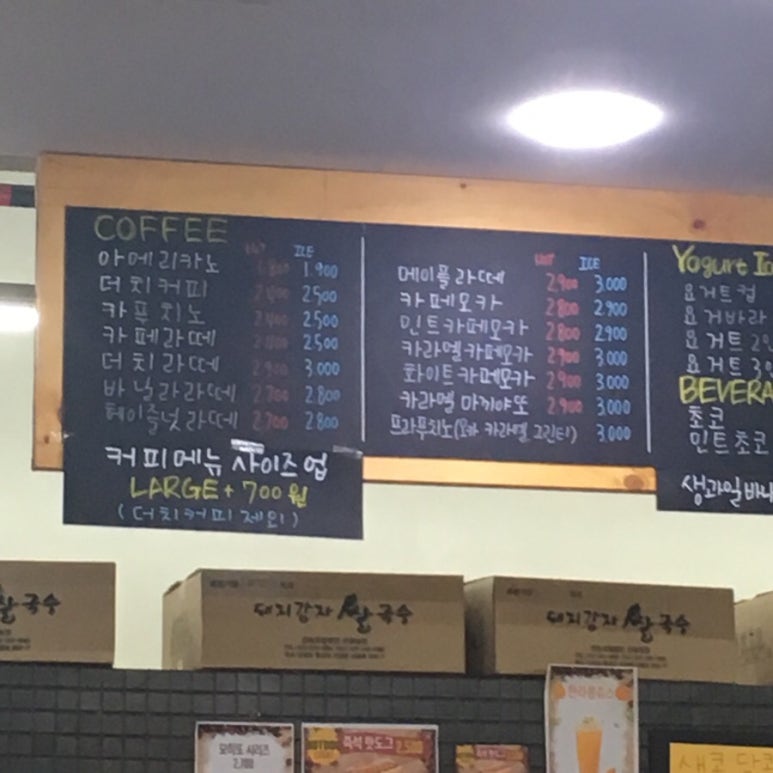 COFFEE
HOT ICE
아메리카노 1.900
더치커피 2500
카푸치노 2.500
카페라떼 2.500
더치라떼 3.000
바닐라라떼 2.700 2.800
헤이즐넛라떼 2.700 2.800
커피메뉴 사이즈업
LARGE + 700원
(더치커피 제외)
HOT ICE
메이플라떼 2.900 3.000
카페모카 2.800 2.900
민트카페모카 2.800 2.900
카라멜카페모카 2.900 3.000
화이트카페모카 2.900 3.000
카라멜 마끼야또 2.900 3.000
프라푸치노(모카 카라멜 그린티) 3.000
Yogurt
요거트컵
요거바라
요거트 2인
요거트 3인
BEVERA
초코
민트초코
생과일바나
쌀국수
돼지감자 쌀국수
돼지감자 쌀국수
모히또 시리즈
2,700
HOTDOG
즉석 핫도그 2,500
즉석 핫도그
한라봉쥬스
생과일